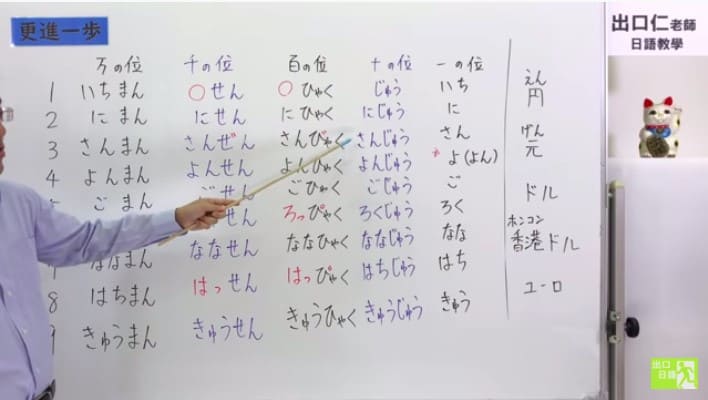 更進一步
万の位 千の位 百の位 十の位 一の位
1 いちまん ○せん ○ひゃく じゅう いち
2 にまん にせん にひゃく にじゅう に
3 さんまん さんぜん さんびゃく さんじゅう さん
4 よんまん よんせん よんひゃく よんじゅう *よ(よん)
ごまん ごせん ごひゃく ごじゅう ご
せん ろっぴゃく ろくじゅう ろく
ななまん ななせん ななひゃく ななじゅう なな
8 はちまん はっせん はっぴゃく はちじゅう はち
きゅうまん きゅうせん きゅうひゃく きゅうじゅう きゅう
えん
円
げん
元
ドル
ホンコン
香港ドル
ユーロ
出口仁老師
日語教學
出口
日語